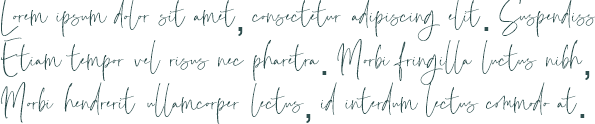 Lorem ipsum dolor sit amet, consectetur adipiscing elit. Suspendiss
Etiam tempor vel risus nec pharetra. Morbi fringilla luctus nibh,
Morbi hendrerit ullamcorper lectus, id interdum lectus commodo at.